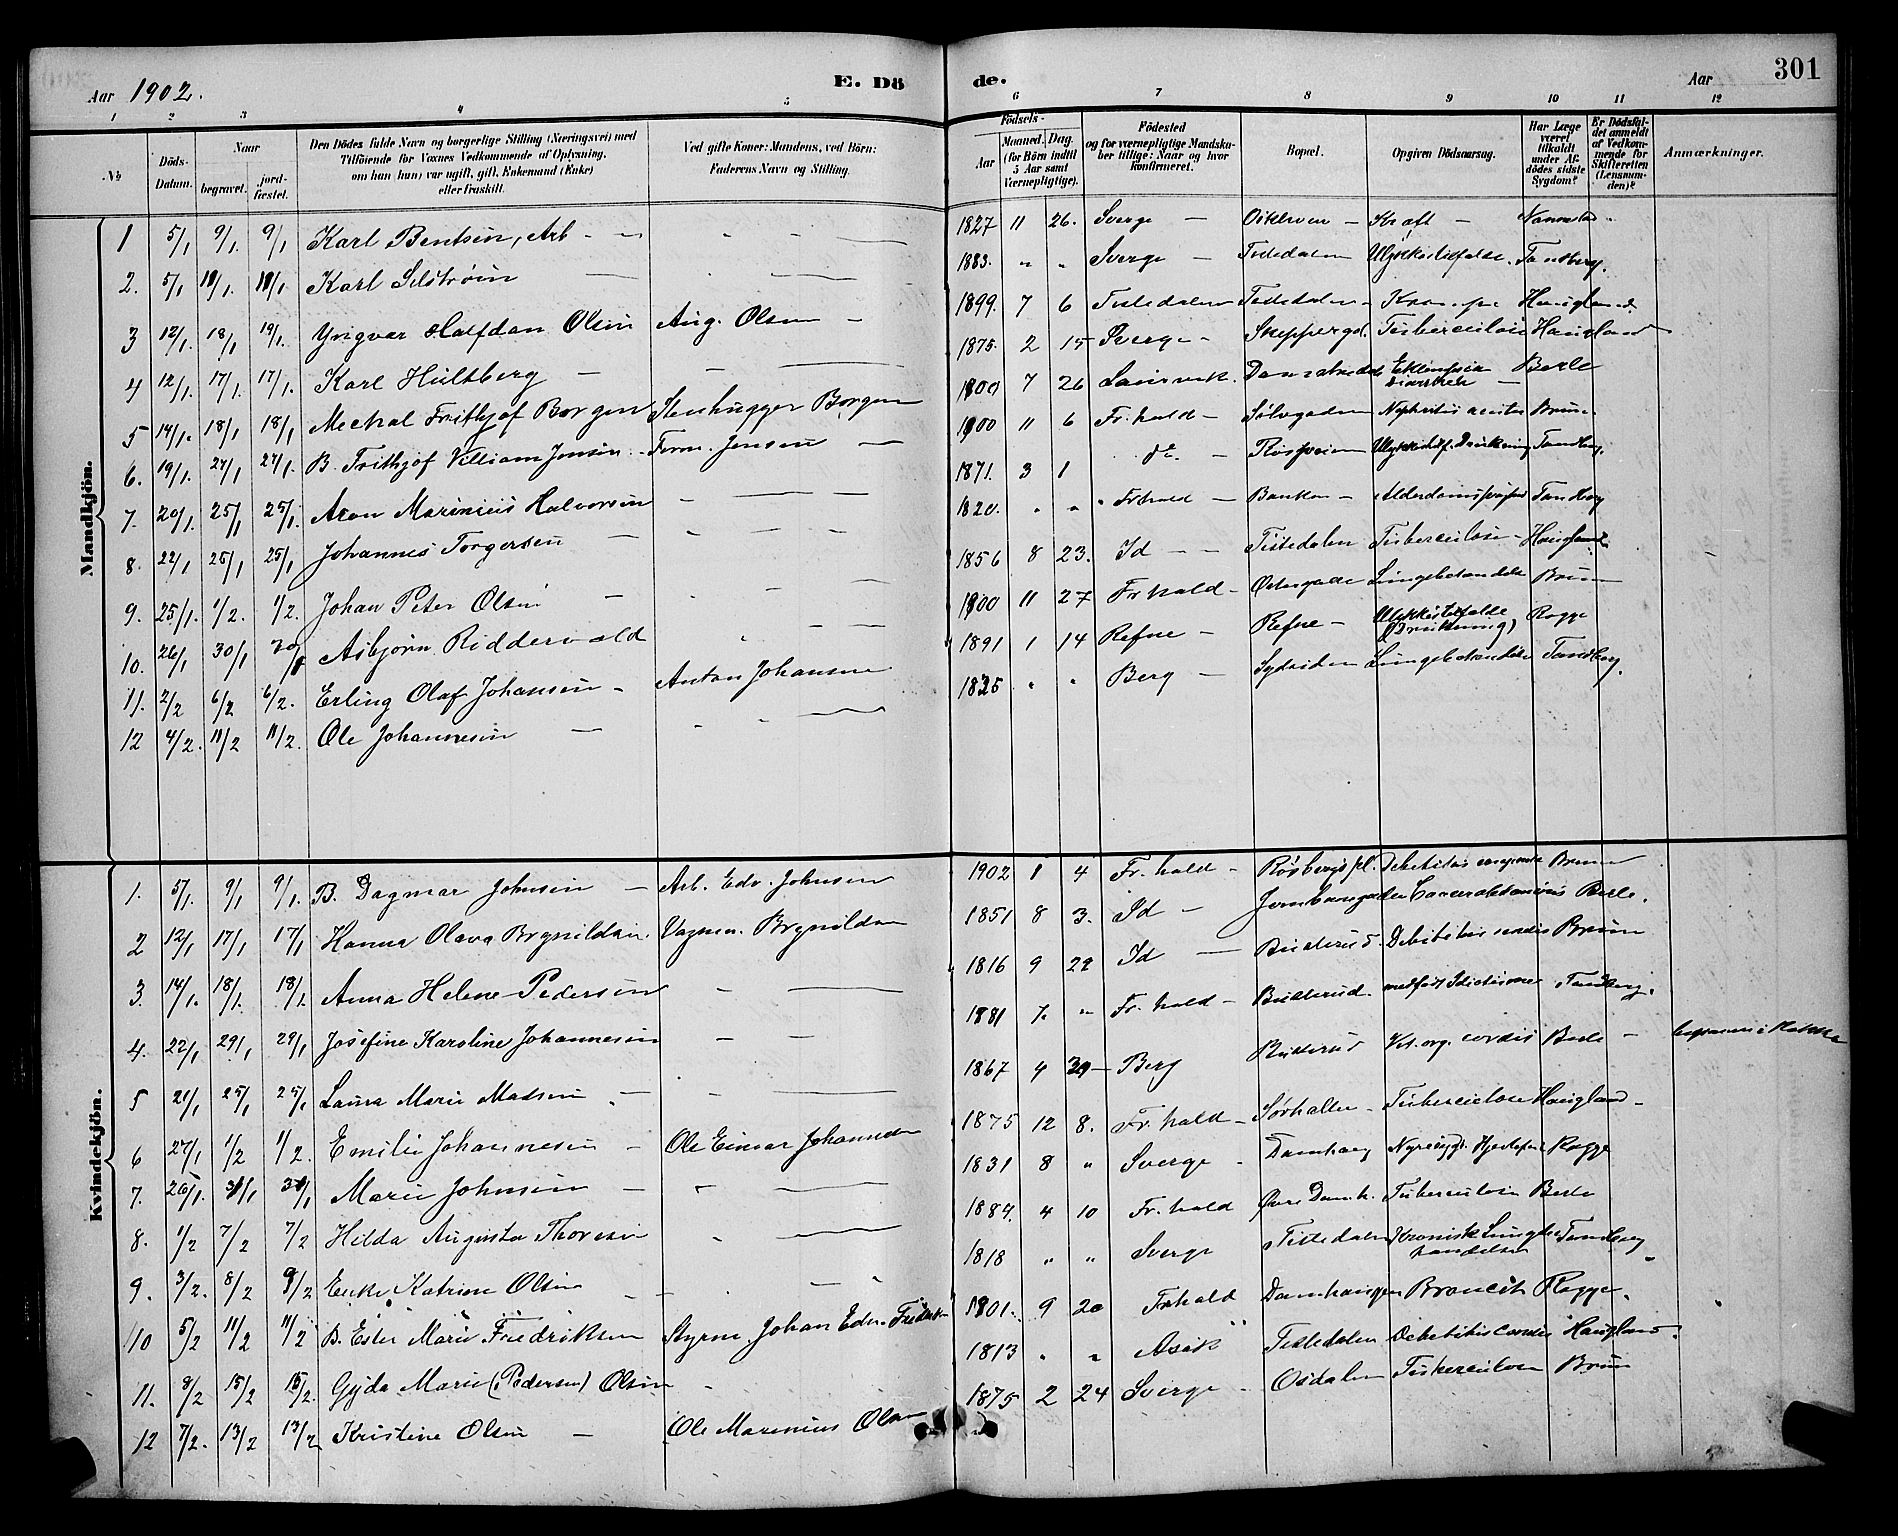 Aar 1902. E. Dö
1 2 3 4 5
№ Döds-Datum. Naar begravet. jord-fæstet. Den Dödes fulde Navn og borgerlige Stilling (Næringsvei) med Tilföiende for Voxnes Vedkommende af Oplysning, om han (hun) var ugift, gift, Enkemand (Enke) eller fraskilt. Ved gifte Koner: Mandens, ved Börn: Faderens Navn og Stilling.
Mandkjön.
1 5/1 9/1. 9/1 Karl Bentsen, Arb - —
2. 5/1 18/1. 18/1 Karl —
3 12/1. 18/1 19/1. Yngvar Halfdan Olsen Aug. Olsen —
4 12/1. 17/1. 17/1. Karl Hultberg —
5 14/1. 18/1 18/1 Mechal Frithjof Borgen Stenhugger Borgen
6. 19/1. 27/1 27/1. B. Frithjof Villiam Jensen Form. Jensen —
7. 20/1. 25/1 25/1. Aron Marinius Halvorsen
8. 22/1 25/1 25/1 Johannes Torgersen —
9. 25/1. 1/2. 1/2. Johan Peter Olsen —
10. 26/1 30/1 30/1 Asbjørn Riddervold
11. 2/2 6/2 6/2. Erling Olaf Johansen - Anton Johansen
12 4/2. 11/2 11/2. Ole Johannesen —
Kvindekjön.
1. 5/1. 9/1 9/1. B. Dagmar Johnsen — Arb. Edv. Johnsen
2 12/1 17/1 17/1 Hanna Olava Brynildsen. Vognm. Brynildsen
3. 14/1. 18/1. 18/1. Anna Helene Pedersen
4. 22/1 29/1 29/1 Josefine Karoline Johannesen
5 21/1 25/1 25/1 Laura Marie Madsen —
6 27/1 1/2 1/2. Emilie Johannesen — Ole Einar Johannesen
7. 26/1. 31/1 31/1 Marie Johnsen —
8. 1/2 7/2 7/2 Hilda Augusta Thoresen
9. 3/2. 8/2 8/2 Enke Katrine Olsen
10 5/2 11/2 11/2 B. Ester Marie Fredriksen Styrm. Johan Edv. Fredriksen
11. 8/2 15/2 15/2. Gyda Marie (Pedersen) Olsen
12 7/2. 13/2 13/2 Kristine Olsen — Ole Marinius Olsen
de. Aar 301
6 7 8 9 10 11 12
Födsels- Aar Maaned. Dag. (for Börn indtil 5 Aar samt Værnepligtige). Födested og for værnepligtige Mandskaber tillige: Naar og hvor konfirmeret. Bopæl. Opgiven Dödsaarsag. Har Læge været tilkaldt under Afdödes sidste Sygdom? Er Dödsfaldet anmeldt af Vedkommende for Skifteretten (Lensmanden)? Anmærkninger.
1827 11 26. Sverge — Kræft —
1883. " " Sverge — Tistedalen Ulykkestilfælde. Tandberg.
1899. 7 6 Tistedalen Tistedalen Haugland.
1875. 2 15 Sverge - Tuberculose Haugland
1900 7 26 Laurvik. Berle
1900 11 6 Fr.hald — Sølvgaden Nephritis acuta Bruun
1871. 3 1 do. — Drukning Tandberg.
1820. " " Fr.hald — Banken — Tandberg
1856 8 23. Id — Tistedalen Tuberculose - Haugland
1900 11 27 Fr.hald — Østergade Lungebetændelse Bruun
1891 1 14 Refne — Refne — Ulykkestilfælde (Drukning) Rogge
1825 " " Berg — Sydsiden Lungebetændelse Tandberg.
1902 1 4 Fr.hald — Røsbergs pl. Debilitas congenita Bruun
1851 8 3. Id — Jernbanegaden Berle.
1816 9 22 Id — Busterud. Debilitas cordis Bruun
1881 7. " Fr.hald — Busterud. medfødt Idiotisme Tandberg.
1867 4 Berg Busterud Vit. org. cordis Berle —
1875 12 8. Fr.hald — Sørhalla - Tuberculose Haugland -
1831 8 " Sverge - Damhaug Nyresygd. Hjertefeil Rogge
1884. 4 10 Fr.hald Øvre Damh. Tuberculose Berle
1818 " " Sverge Tistedalen Kronisk Lungebetændelse Tandberg
1901. 9 20 Fr.hald Damhaugen Bronchit Rogge.
1813 " " Tistedalen Debilitas cordis Haugland.
1875 2 24 Sverge - Osdalen Tuberculose Bruun